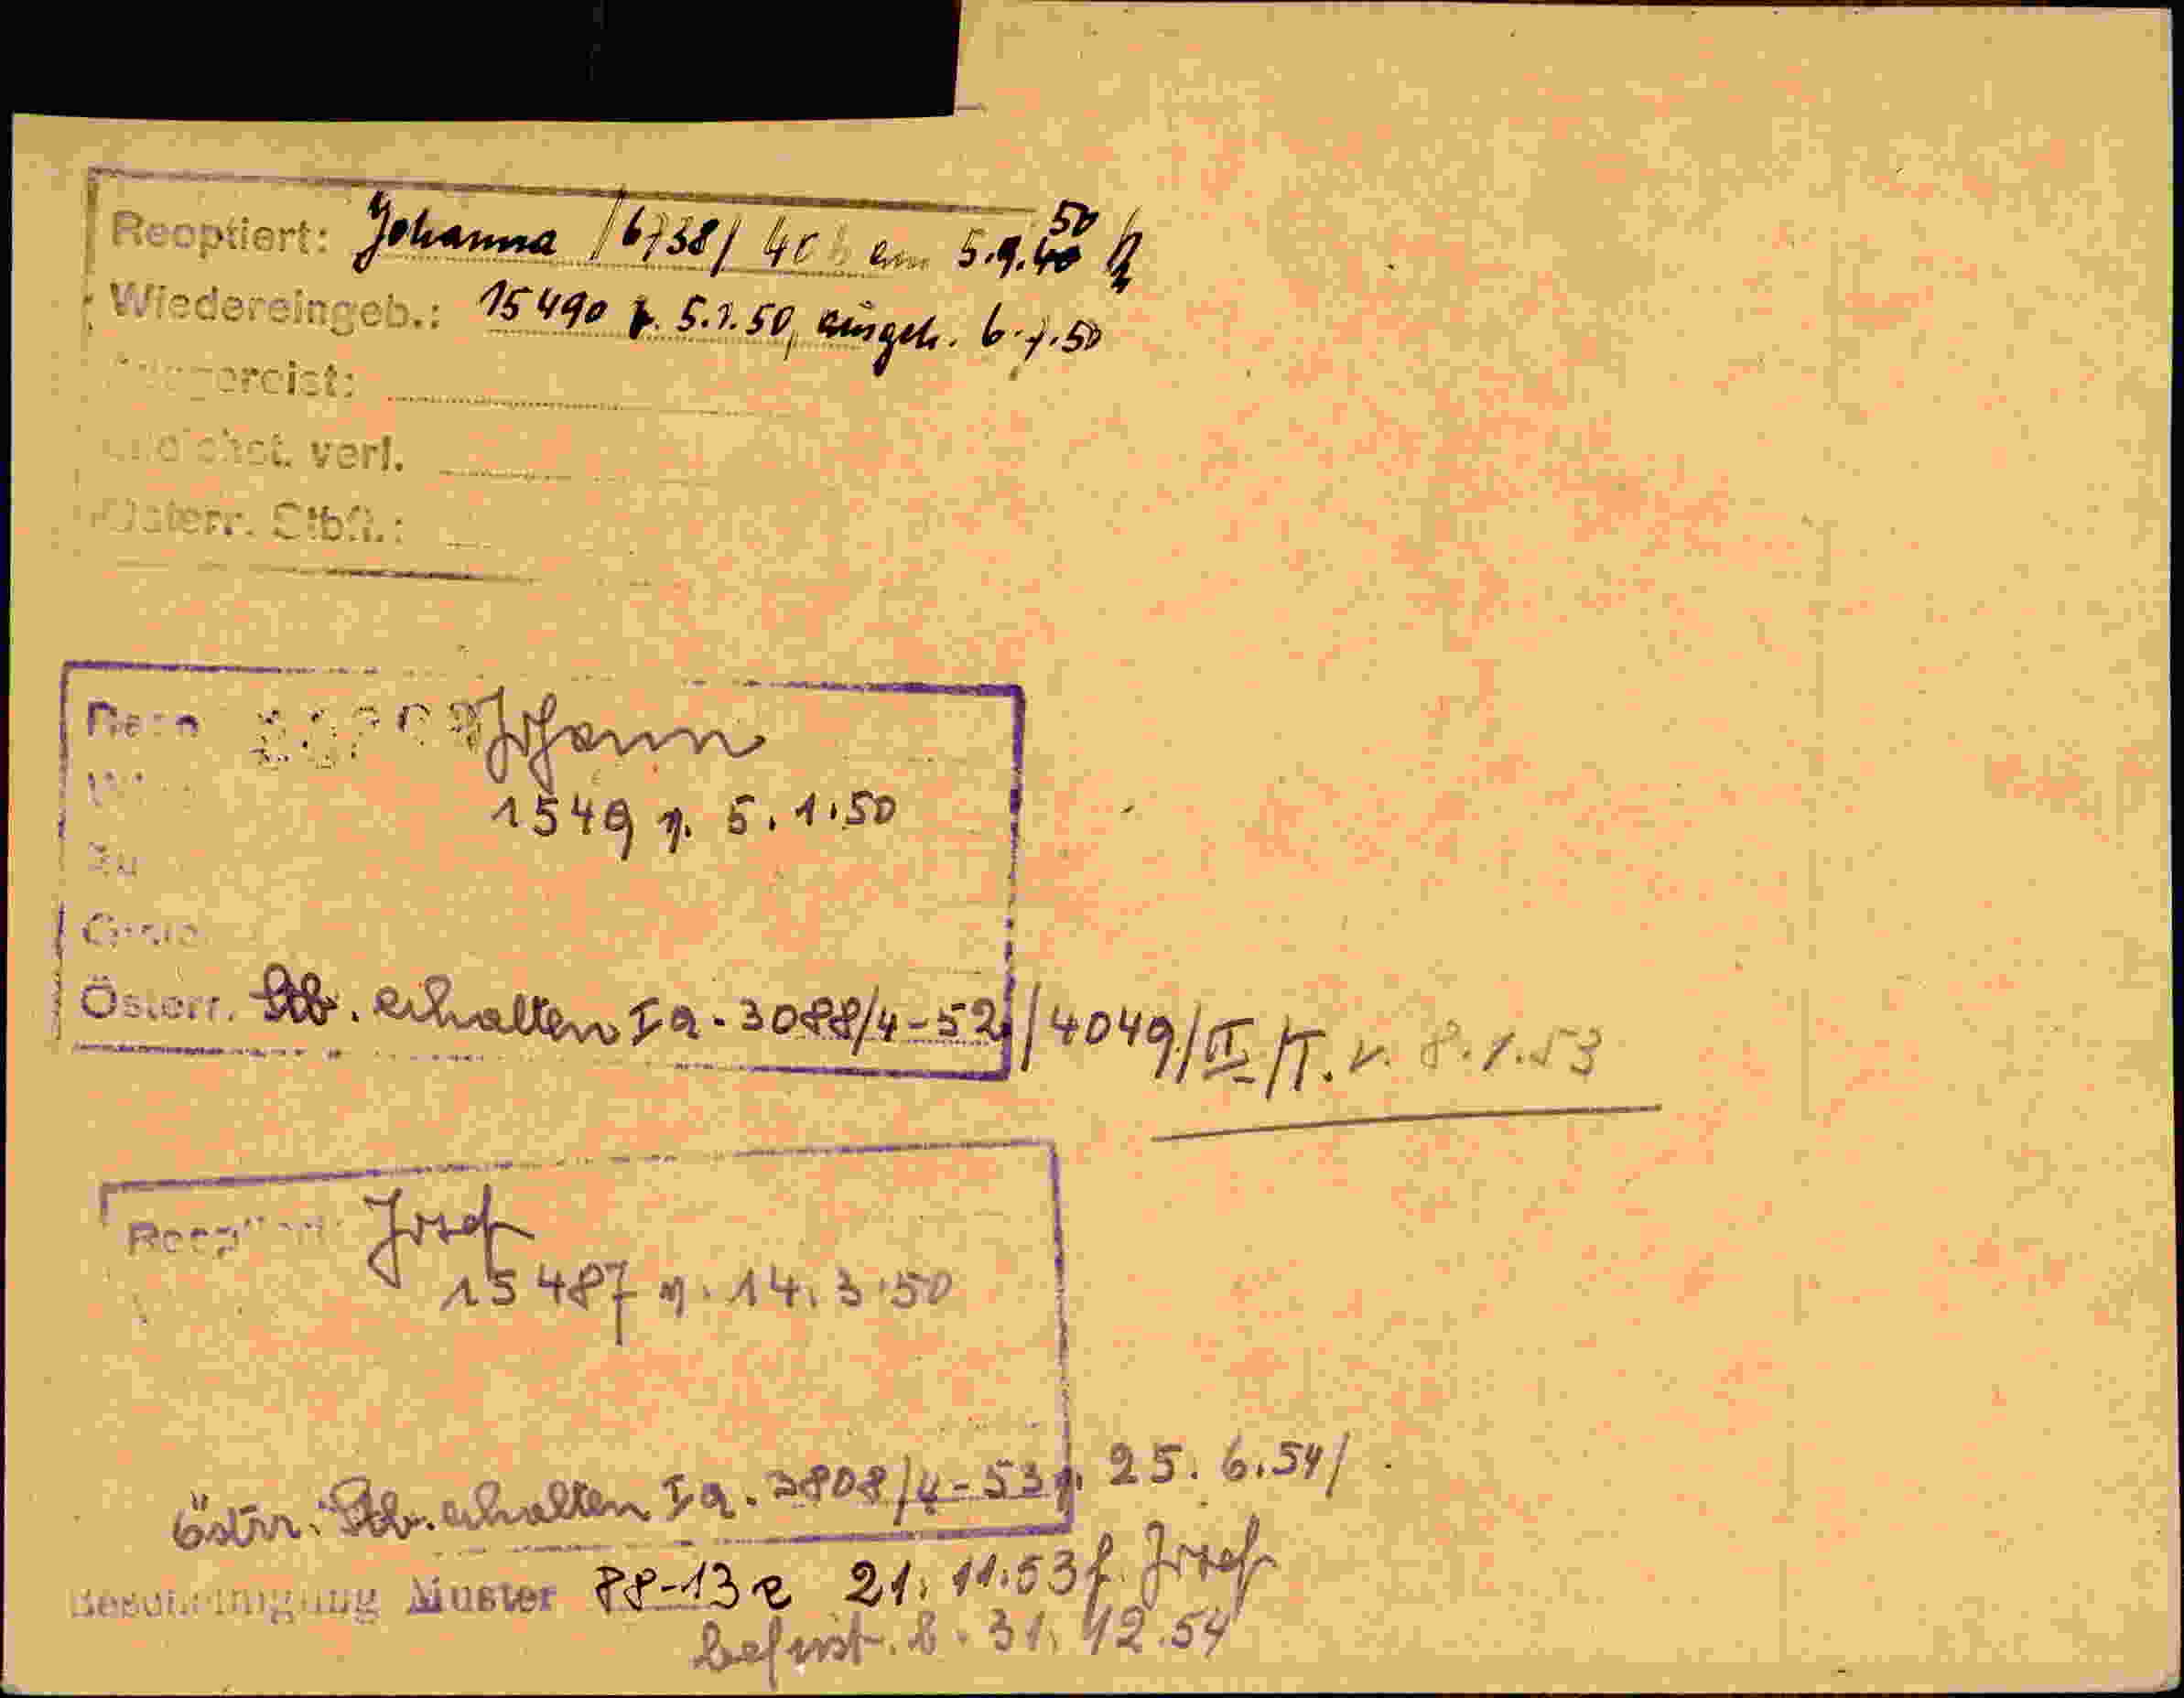 Reoptiert: Johanna /6738/ 40 am 5.9.40 50
Wiedereingeb.: 15490 v. 5.1.50, ausgeh. 6.7.50
verl.
Österr. Stbft.:
Johann
1549 v. 5.1.50
Österr. Stb. erhalten Ia. 3088/4-52 /4049/II/T. v. 8.1.53
Josef
15487 v. 14.3.50
östrr. Stb. erhalten Ia. 3808/4-53 v. 25.6.54/
Bescheinigung Muster 88-13 e 21.11.53 f. Josef
befrist. b. 31.12.54